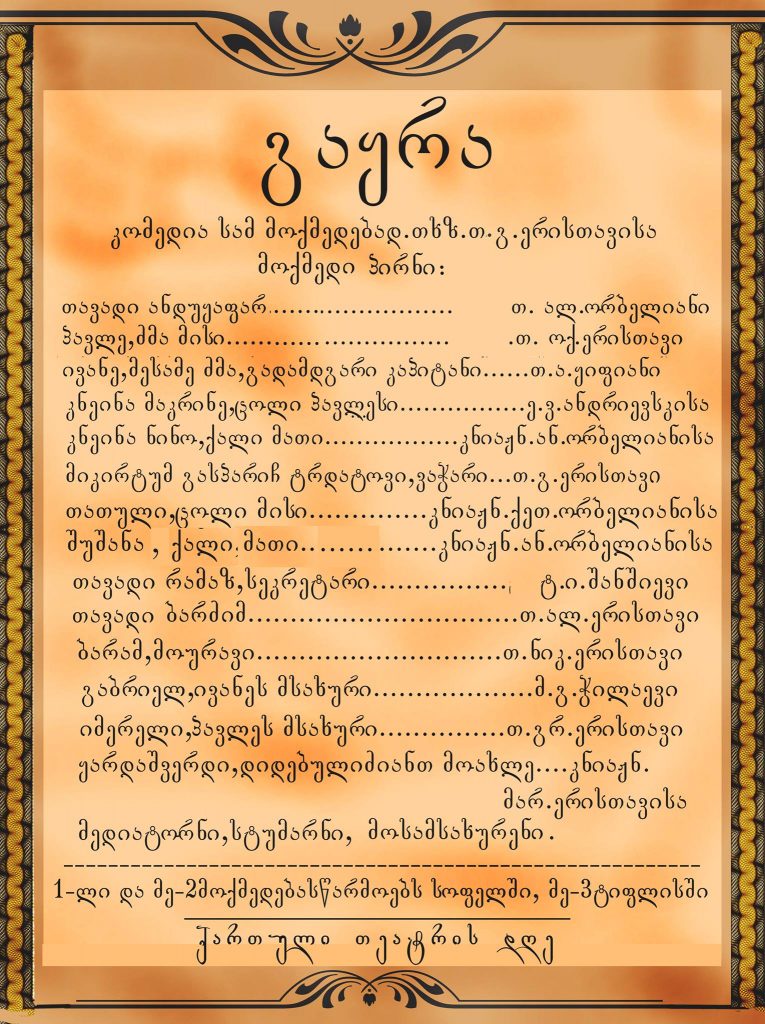 გაყრა
კომედია სამ მოქმედებად.თხზ.თ.გ.ერისთავისა
მოქმედი პირნი:
თავადი ანდუყაფარ....................... თ. ალ.ორბელიანი
პავლე,ძმა მისი............................ .თ. ოქ.ერისთავი
ივანე,მესამე ძმა,გადამდგარი კაპიტანი......თ.ა.ყიფიანი
კნეინა მაკრინე,ცოლი პავლესი................ე.ვ.ანდრიევსკისა
კნეინა ნინო,ქალი მათი.................კნიაჟნ.ან.ორბელიანისა
მიკირტუმ გასპარიჩ ტრდატოვი,ვაჭარი...თ.გ.ერისთავი
თათული,ცოლი მისი...............კნიაჟნ.ქეთ.ორბელიანისა
შუშანა , ქალი მათი.................კნიაჟნ.ან.ორბელიანისა
თავადი რამაზ,სეკრეტარი................. ტ.ი.შანშიევი
თავადი ბარძიმ..................................თ.ალ.ერისთავი
ბარამ,მოურავი...............................თ.ნიკ.ერისთავი
გაბრიელ,ივანეს მსახური....................მ.გ.ჭილაევი
იმერელი,პავლეს მსახური................თ.გრ.ერისთავი
ყარდაშვერდი,დიდებულიძიანთ მოახლე....კნიაჟნ.
მარ.ერისთავისა
მედიატორნი,სტუმარნი, მოსამსახურენი.
1-ლი და მე-2მოქმედებასწარმოებს სოფელში, მე-3ტიფლისში
ქართული თეატრის დღე